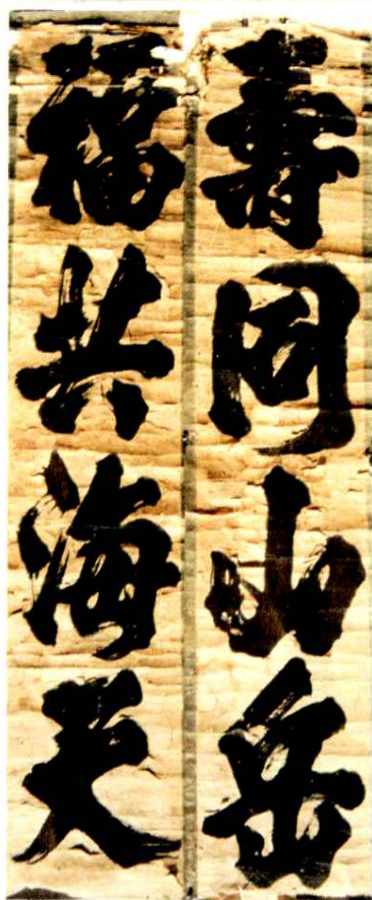 壽同山岳
福共海天